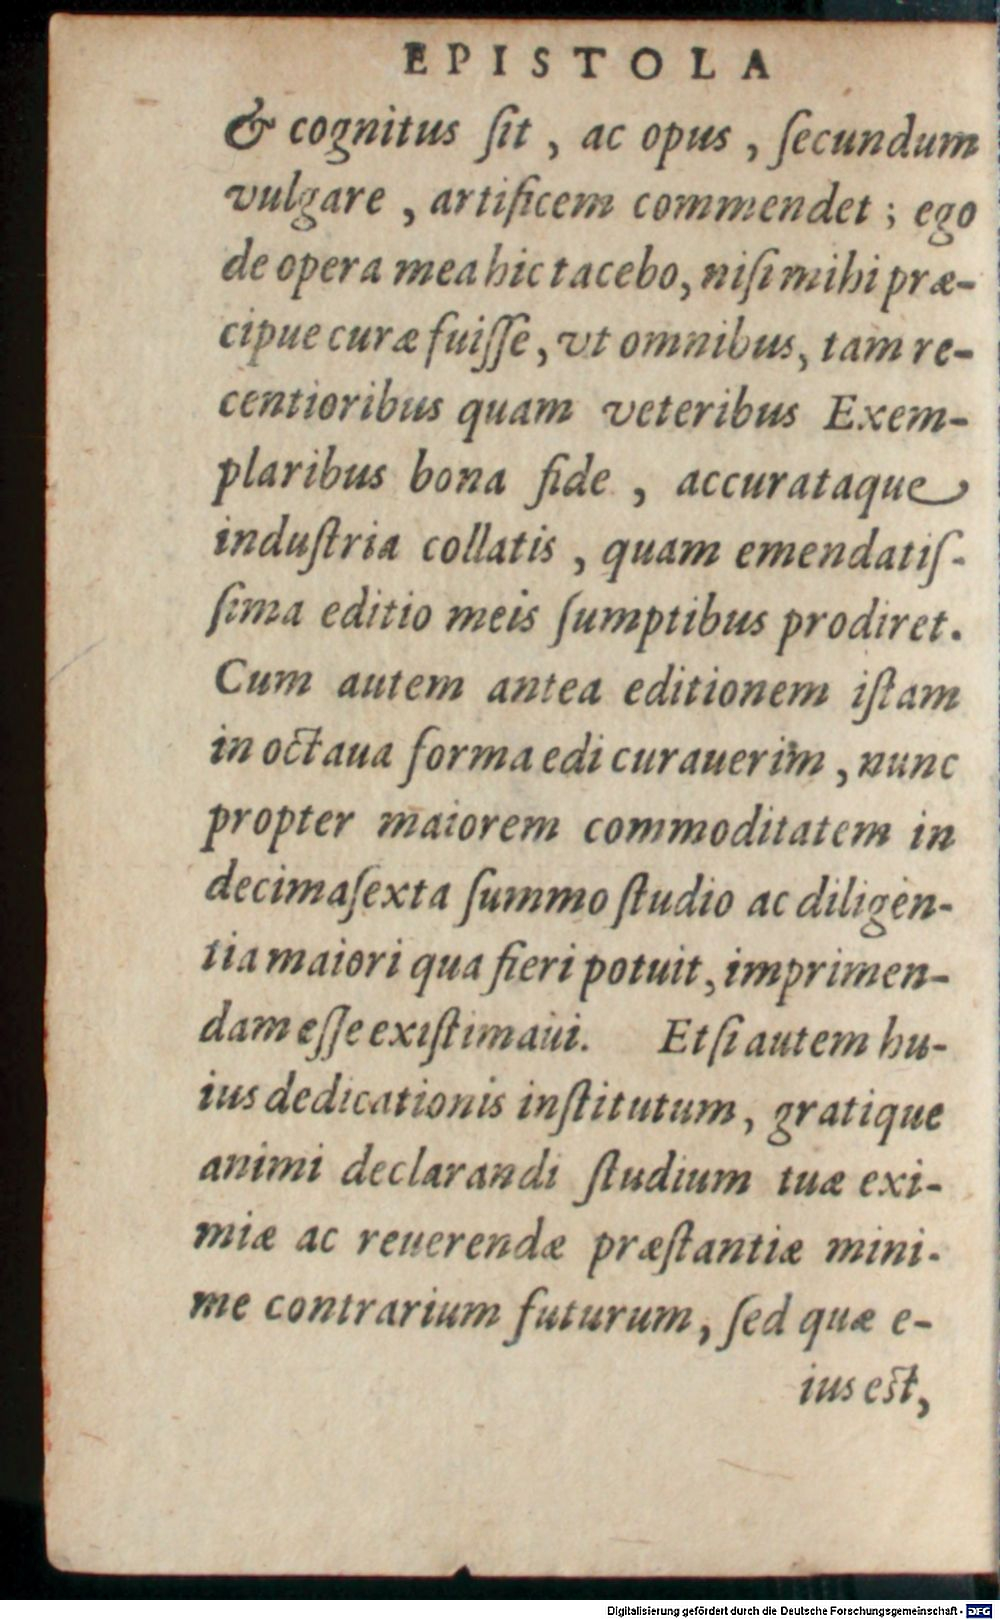 EPISTOLA
& cognitus ſit, ac opus, ſecundum
vulgare, artificem commendet; ego
de opera mea hic tacebo, niſi mihi præ-
cipue curæ fuiſſe, vt omnibus, tam re-
centioribus quam veteribus Exem-
plaribus bona fide, accurataque
induſtria collatis, quam emendatiſ-
ſima editio meis ſumptibus prodiret.
Cum autem antea editionem iſtam
in octaua forma edi curauerim, nunc
propter maiorem commoditatem in
decimaſexta ſummo ſtudio ac diligen-
tia maiori qua fieri potuit, imprimen-
dam eſſe exiſtimaui. Etſi autem hu-
ius dedicationis inſtitutum, gratique
animi declarandi ſtudium tuæ exi-
miæ ac reuerendæ præſtantiæ mini-
me contrarium futurum, ſed quæ e-
ius eſt,
Digitalisierung gefördert durch die Deutsche Forschungsgemeinschaft - DFG